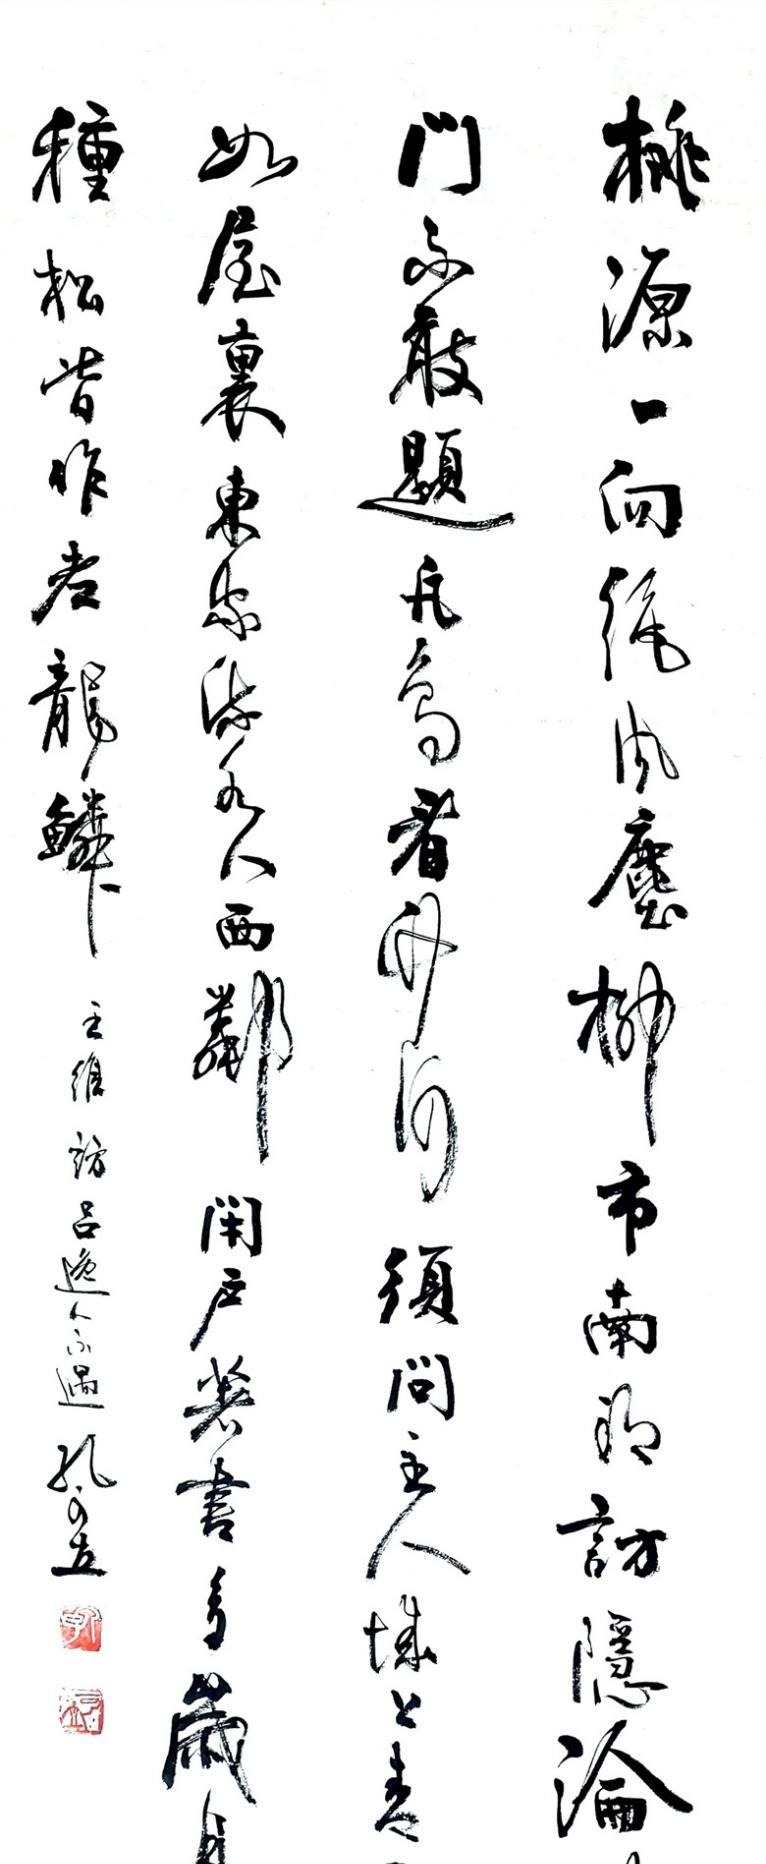 桃源一向絕風塵柳市南頭訪隱淪
門不敢題凡鳥看竹何須問主人城上青
如屋裏東家流水人西鄰閉戶著書多歲月
種松皆作老龍鱗 王維訪呂逸人不遇 孔可立